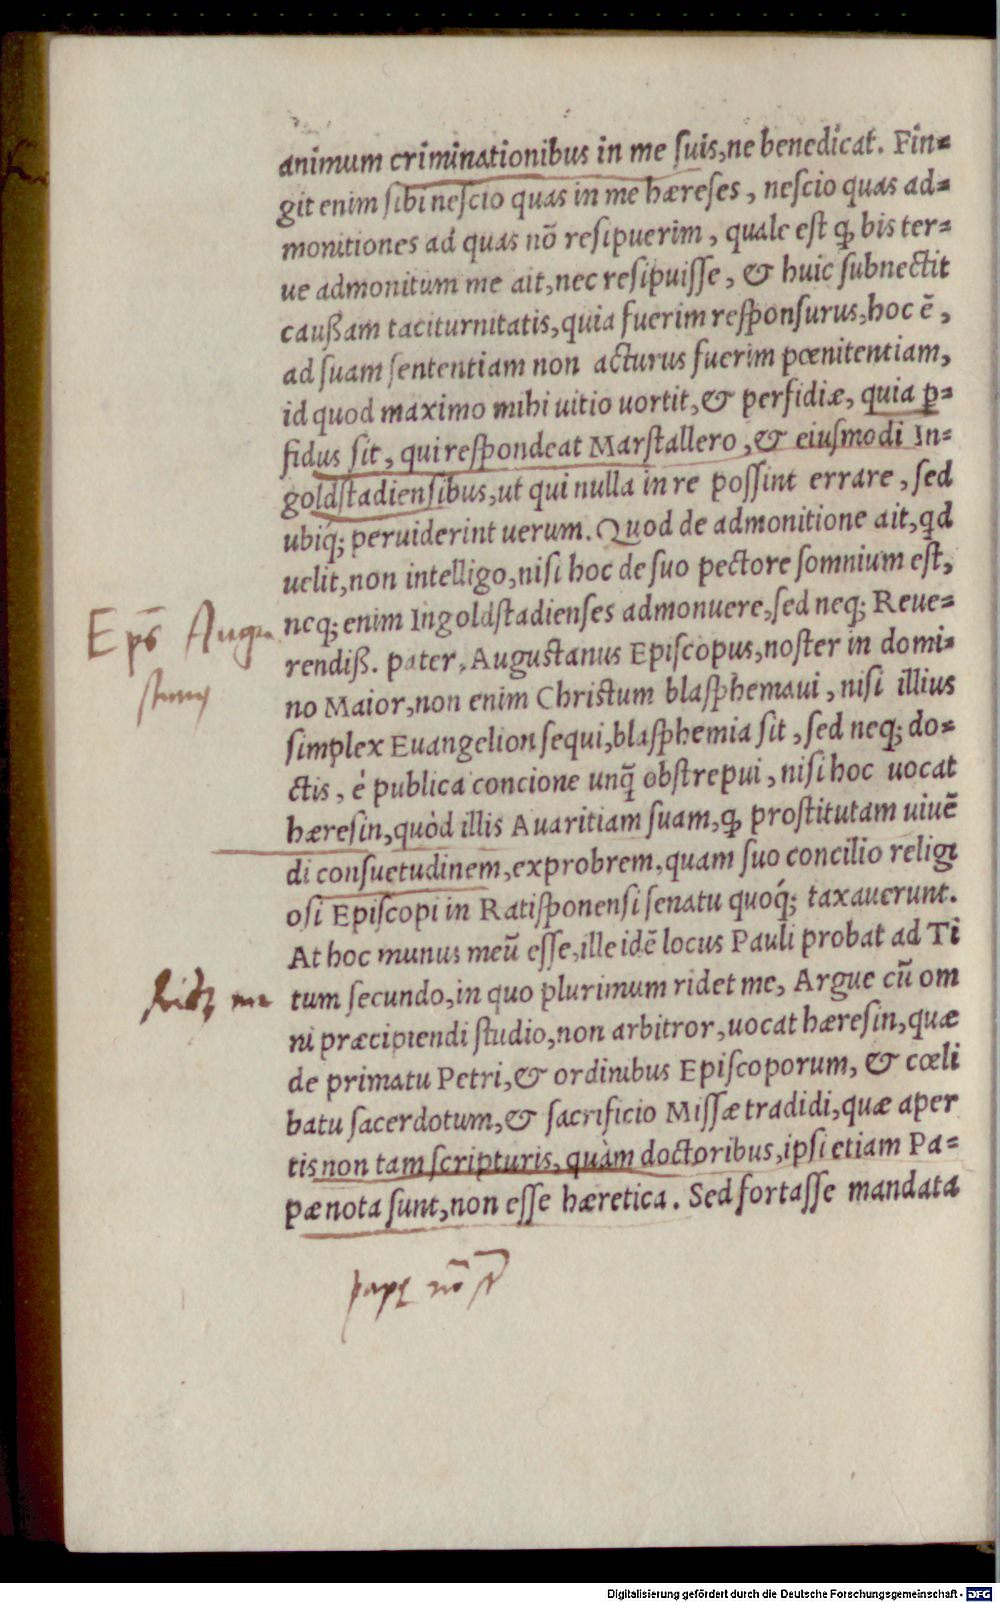 animum criminationibus in me ſuis,ne benedicat. Fin⸗
git enim ſibi neſcio quas in me hæreſes, neſcio quas ad⸗
monitiones ad quas nō reſipuerim, quale eſt ꝙ bis ter⸗
ue admonitum me ait,nec reſipuiſſe, & huic ſubnectit
cauſſam taciturnitatis,quia fuerim reſponſurus,hoc ē,
ad ſuam ſententiam non acturus fuerim pœnitentiam,
id quod maximo mihi uitio uortit,& perfidiæ, quia ꝑ⸗
fidus ſit, qui reſpondeat Marſtallero, & eiuſmodi In⸗
goldſtadienſibus,ut qui nulla in re poſſint errare, ſed
ubiq́; peruiderint uerum. Quod de admonitione ait,qd
uelit,non intelligo,niſi hoc de ſuo pectore ſomnium eſt,
neq; enim Ingoldſtadienſes admonuere,ſed neq; Reue⸗
Epūs Augu
rendiß. pater, Auguſtanus Epiſcopus,noſter in domi⸗
ſtanus
no Maior,non enim Chriſtum blaſphemaui, niſi illius
ſimplex Euangelion ſequi,blaſphemia ſit, ſed neq; do⸗
ctis, é publica concione unq̄ obſtrepui, niſi hoc uocat
hæreſin,quòd illis Auaritiam ſuam,ꝙ proſtitutam uiuē
di conſuetudinem,exprobrem,quam ſuo concilio religi
oſi Epiſcopi in Ratiſponenſi ſenatu quoq́; taxauerunt.
At hoc munus meū eſſe,ille idē locus Pauli probat ad Ti
tum ſecundo,in quo plurimum ridet me, Argue cū om
ni præcipiendi ſtudio,non arbitror,uocat hæreſin,quæ
de primatu Petri,& ordinibus Epiſcoporum, & cœli
batu ſacerdotum,& ſacrificio Miſſæ tradidi,quæ aper
tis non tam ſcripturis, quàm doctoribus,ipſi etiam Pa⸗
pæ nota ſunt,non eſſe hæretica. Sed fortaſſe mandata
Digitalisierung gefördert durch die Deutsche Forschungsgemeinschaft - DFG